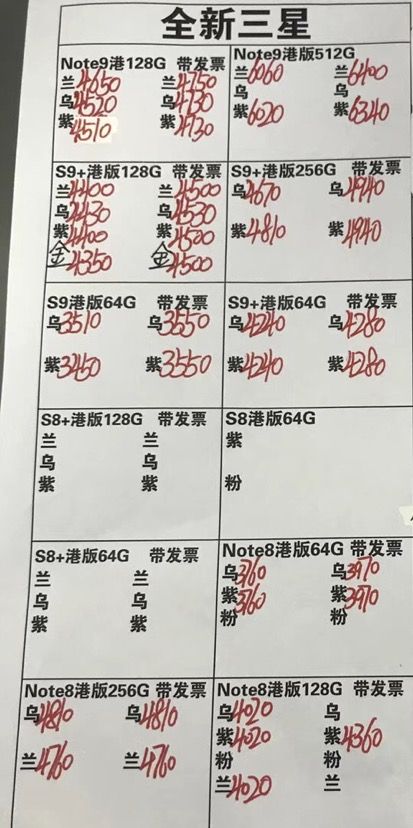 全新三星
Note9港128G 带发票
兰4650 兰4750
乌4520 乌4730
紫4510 紫4730
Note9港版512G
兰6060 兰6400
乌 乌
紫6020 紫6340
S9+港版128G 带发票
兰4400 兰4500
乌4430 乌4530
紫4400 紫4500
金4350 金4500
S9+港版256G 带发票
乌4670 乌4940
紫4810 紫4940
S9港版64G 带发票
乌3510 乌3550
紫3450 紫3550
S9+港版64G 带发票
乌4240 乌4280
紫4240 紫4280
S8+港版128G 带发票
兰 兰
乌 乌
紫 紫
S8港版64G
紫
粉
S8+港版64G 带发票
兰 兰
乌 乌
紫 紫
Note8港版64G 带发票
乌3760 乌3970
紫3760 紫3970
粉 粉
Note8港版256G 带发票
乌4810 乌4810
兰4760 兰4760
Note8港版128G 带发票
乌4020 乌
紫4020 紫4360
粉 粉
兰4020 兰